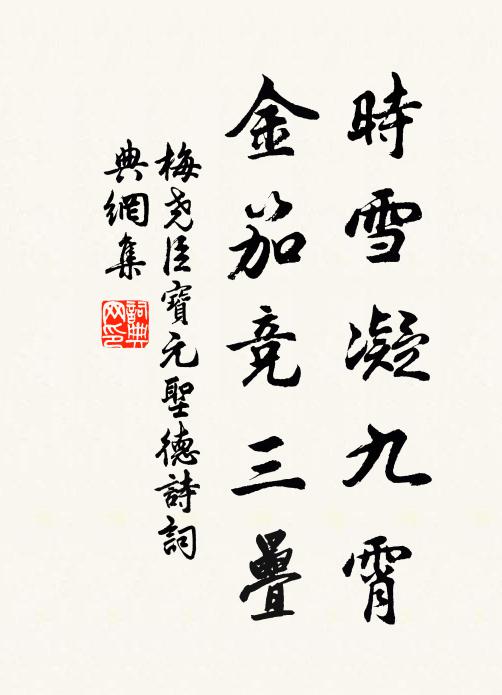 時雪凝九霄
金笳竞三疊
梅尧臣寶元聖德詩詞
典網集
詞典网印